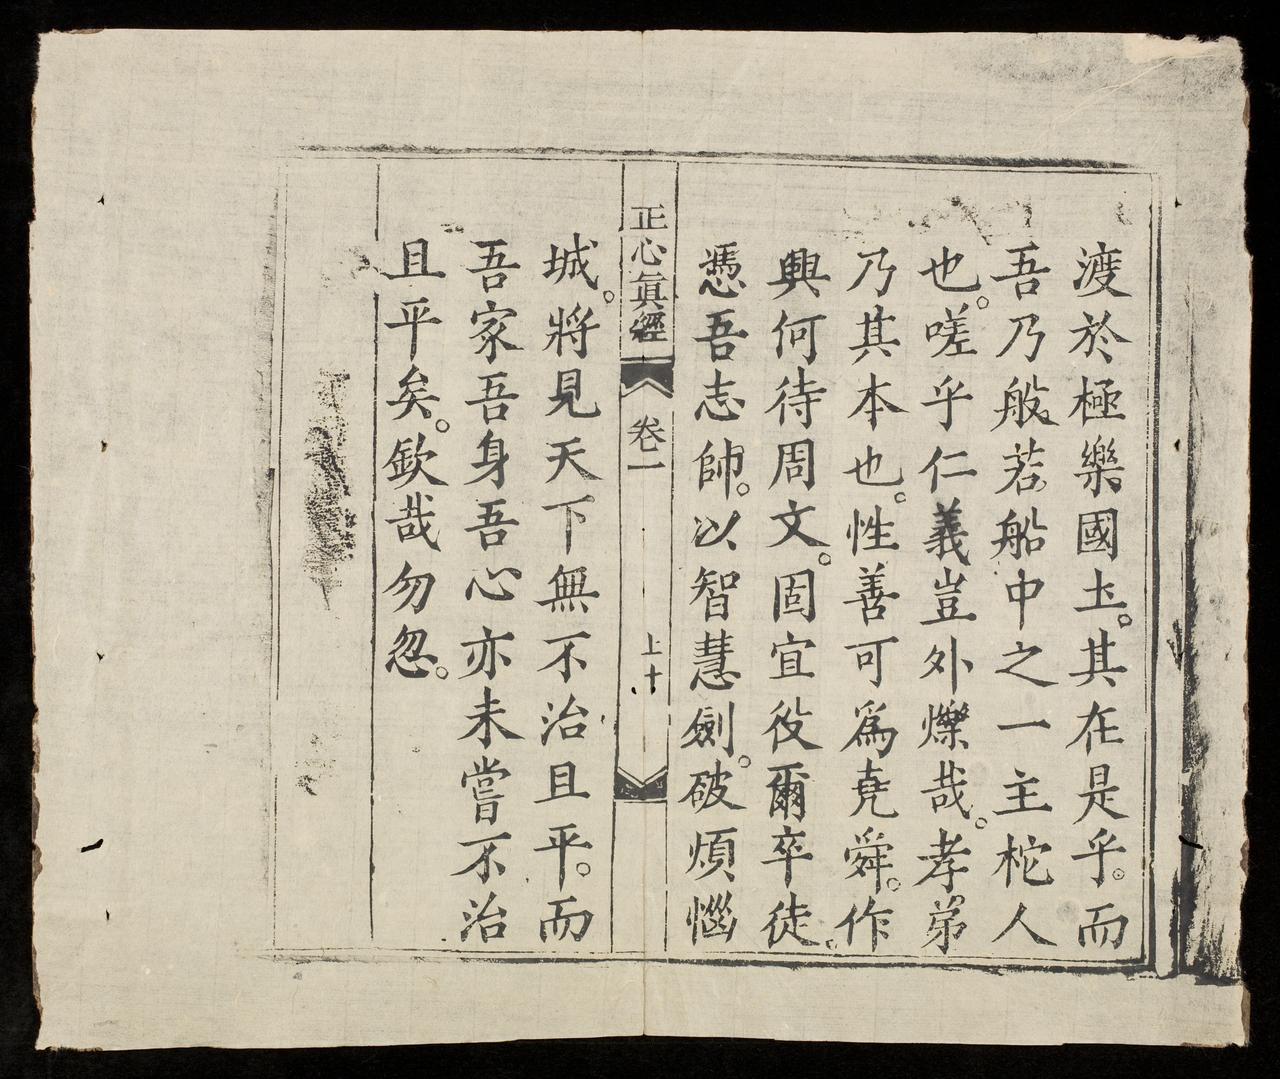 渡於極樂國土。其在是乎。而
吾乃般若船中之一主柁人
也。嗟乎仁義豈外爍哉。孝弟
乃其本也。性善可爲堯舜。作
興何待周文。固宜役爾卒徒。
憑吾志帥。以智慧劍。破煩惱
正心眞經 卷一 上十
城。將見天下無不治且平。而
吾家吾身吾心亦未嘗不治
且平矣。欽哉勿忽。